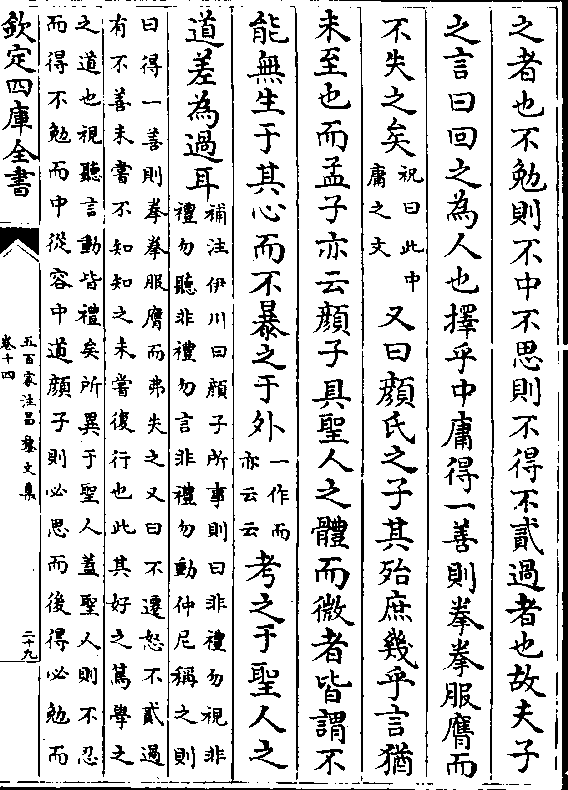 之者也不勉則不中不思則不得不貳過者也故夫子
之言曰回之為人也擇乎中庸得一善則拳拳服膺而
不失之矣祝曰此中庸之文又曰顔氏之子其殆庶幾乎言猶
未至也而孟子亦云顔子具聖人之體而微者皆謂不
能無生于其心而不暴之于外一作而亦云云考之于聖人之
道差為過耳補注伊川曰顔子所事則曰非禮勿視非
禮勿聽非禮勿言非禮勿動仲尼稱之則
曰得一善則拳拳服膺而弗失之又曰不遷怒不貳過
有不善未嘗不知知之未嘗復行也此其好之篤學之
之道也視聽言動皆禮矣所異于聖人蓋聖人則不忍
而得不勉而中從容中道顔子則必思而後得必勉而
欽定四庫全書
五百家注昌黎文集
卷十四
二十九